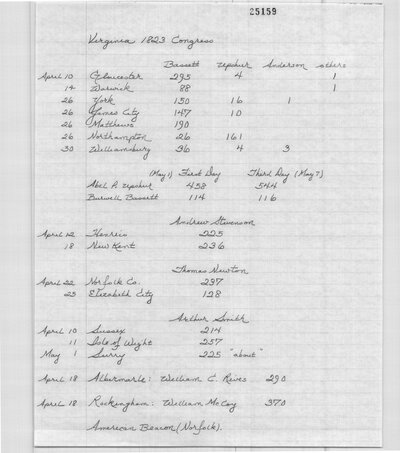 25159
Virginia 1823 Congress
Bassett Upshur Anderson others
April 10 Gloucester 295 4 1
14 Warwick 88 1
26 York 150 16 1
26 James City 147 10
26 Matthews 190
26 Northampton 26 161
30 Williamsburg 36 4 3
(May 1) First Day Third Day (May 7)
Abel P. Upshur 458 544
Burwell Bassett 114 116
Andrew Stevenson
April 12 Henrico 225
18 New Kent 236
Thomas Newton
April 22 Norfolk Co. 297
25 Elizabeth City 128
Arthur Smith
April 10 Sussex 214
11 Isle of Wight 257
May 1 Surry 225 "about"
April 18 Albermarle: William C. Rives 290
April 18 Rockingham: William McCoy 370
American Beacon (Norfolk).